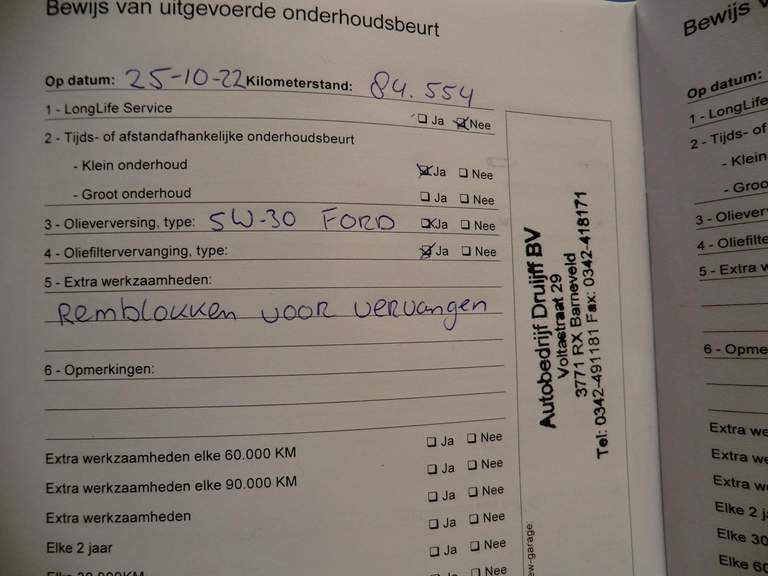 Bewijs van uitgevoerde onderhoudsbeurt
Op datum: 25-10-22 Kilometerstand: 84.554
1 - LongLife Service ❑ Ja ❑ Nee
2 - Tijds- of afstandafhankelijke onderhoudsbeurt
- Klein onderhoud ❑ Ja ❑ Nee
- Groot onderhoud ❑ Ja ❑ Nee
3 - Olieverversing, type: 5W-30 FORD ❑ Ja ❑ Nee
4 - Oliefiltervervanging, type: ❑ Ja ❑ Nee
5 - Extra werkzaamheden:
Remblokken voor vervangen
6 - Opmerkingen:
Extra werkzaamheden elke 60.000 KM ❑ Ja ❑ Nee
Extra werkzaamheden elke 90.000 KM ❑ Ja ❑ Nee
Extra werkzaamheden ❑ Ja ❑ Nee
Elke 2 jaar ❑ Ja ❑ Nee
❑ Ja ❑ Nee
Autobedrijf Druijff BV
Voltastraat 29
3771 RX Barneveld
Tel: 0342-491181 Fax: 0342-418171
Bewijs
Op datum:
1 - LongLife
2 - Tijds- of
- Klein
- Groo
3 - Oliever
4 - Oliefilte
5 - Extra w
6 - Opme
Extra we
Extra we
Extra we
Elke 2 j
Elke 30
Elke 60